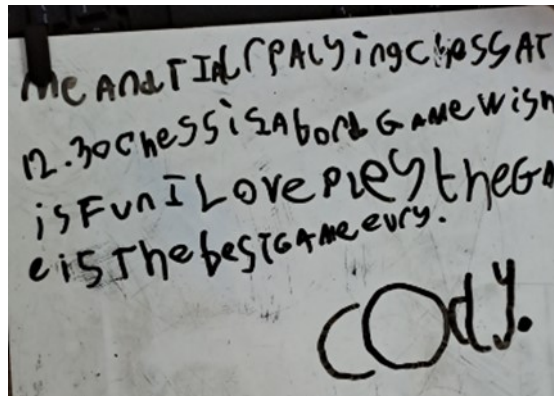 me And TIAL r PALying chess AT
12.30 chess is A bord GAme wish
is Fun I Love PLey the GA
e is The best GAme evry.
cody.